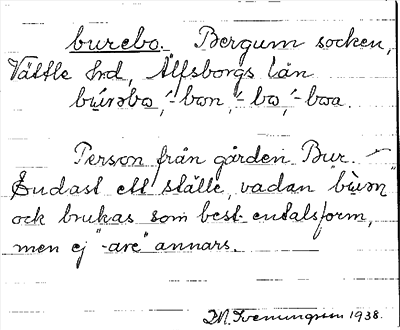 burebo. Bergum socken,
Vättle hd, Älfsborgs län
bùrəbo, ´-bon, ´-bo, ´-boa.
Person från gården Bur. –
Endast ett ställe, vadan "bùrən"
ock brukas som best. entalsform,
men ej "-are" annars.
1938.